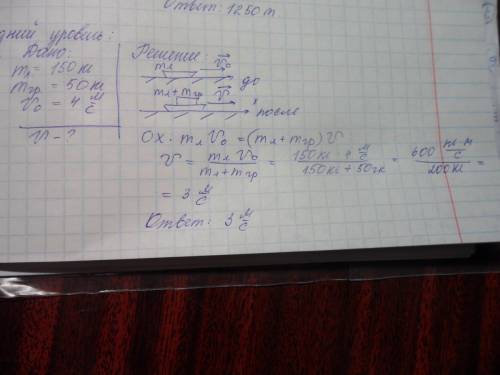 Ответ: 1250 т
дний уровень:
Дано:
mл = 150 кг
mгр = 50 кг
V₀ = 4 м/с
V - ?
Решение:
mл V₀ до
mл + mгр V x после
OX: mл V₀ = (mл + mгр) V
V = mл V₀ / (mл + mгр) = 150 кг · 4 м/с / (150 кг + 50 кг) = 600 кг·м/с / 200 кг =
= 3 м/с
Ответ: 3 м/с